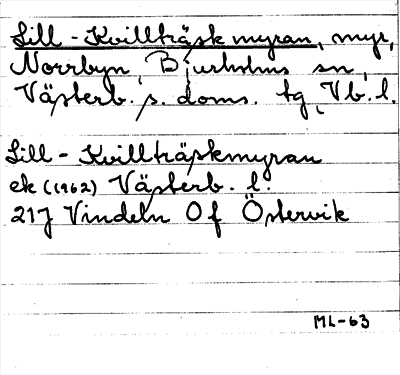 Lill-Kvillträskmyran, myr,
Norrbyn, Bjurholms sn,
Västerb. s. doms. tg, Vb. l.
Lill-Kvillträskmyran
ek (1962) Västerb. l.
21J Vindeln 0f Östervik
ML-63